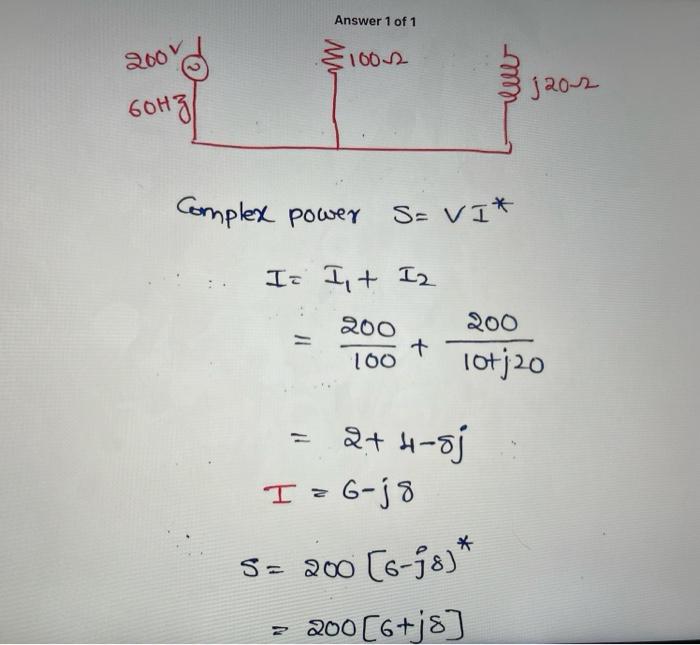 Answer 1 of 1
200V
60Hz
100Ω
j20Ω
Complex power S= VI*
I= I₁+ I₂
= 200/100 + 200/10+j20
= 2+ 4-8j
I = 6-j8
S= 200 [6-j8)*
= 200[6+j8]